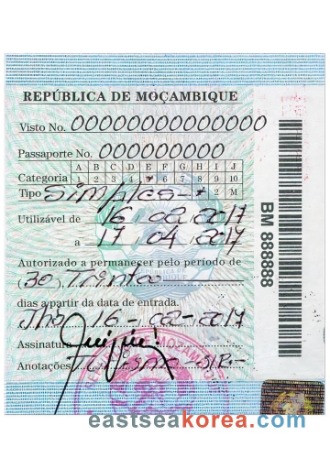 REPÚBLICA DE MOÇAMBIQUE
Visto No. 00000000000000
Passaporte No. 000000000
A B C D E F G H I J
Categoria 1 2 3 4 5 6 7 8 9 10
Tipo Simples 1 2 M
Utilizável de 16 02 2017
a 17 04 2017
Autorizado a permanecer pelo período de
30, Trinta
dias a partir da data de entrada.
16-02-2017
Assinatura
Anotações
BM 888888
eastseakorea.com